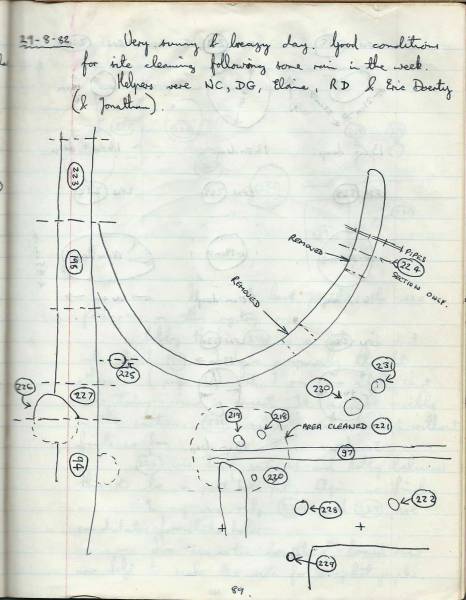 29-8-82 Very sunny & breezy day. Good conditions
for site cleaning following some rain in the week.
Helpers were NC, DG, Elaine, RD & Eric Doherty
(& Jonathan).
223
REMOVED
PIPES
224
SECTION ONLY.
195
REMOVED
225
231
226
227
230
219
218
AREA CLEANED 221
97
94
220
228
222
229
89